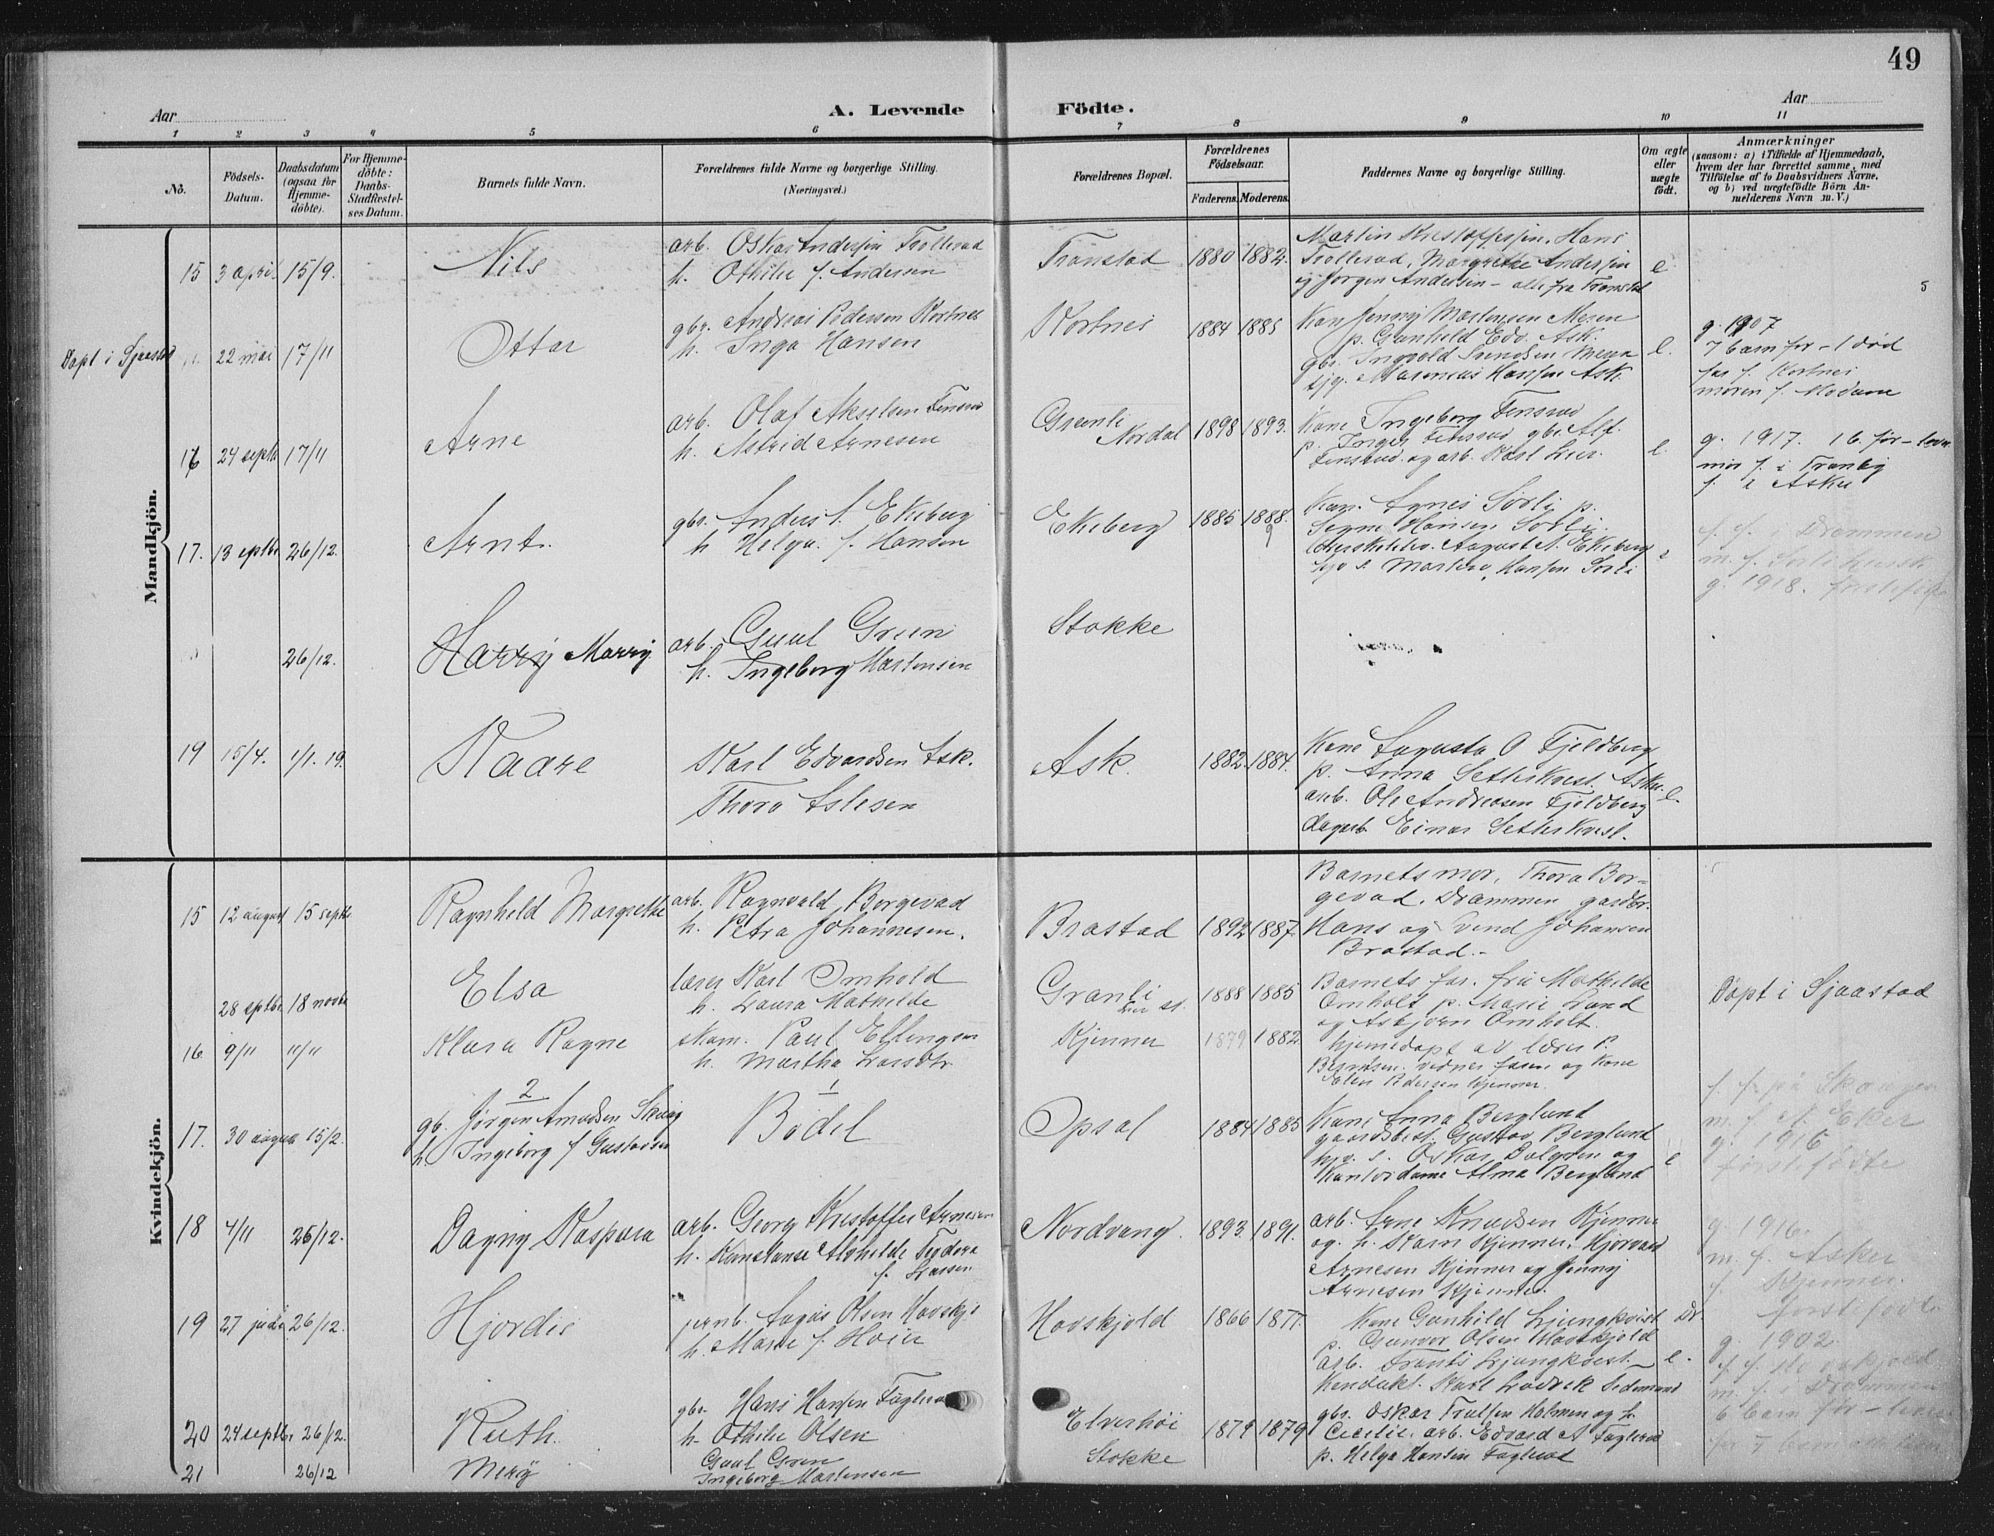 49
Aar
A. Levende
Födte.
Aar
1 2 3 4 5 6 7 8 9 10 11
No.
Födsels-Datum.
Daabsdatum (ogsaa for Hjemme-döbte).
For Hjemme-döbte: Daabs-Stadfæstel-ses Datum.
Barnets fulde Navn.
Forældrenes fulde Navne og borgerlige Stilling. (Næringsvei.)
Forældrenes Bopæl.
Forældrenes Födselsaar.
Faderens. Moderens.
Faddernes Navne og borgerlige Stilling.
Om ægte eller uægte födt.
Anmærkninger
(saasom: a) i Tilfælde af Hjemmedaab, hvem der har forrettet samme, med Tilföielse af to Daabsvidners Navne, og b) ved uægtefödte Börn An-melderens Navn m. V.)
Mandkjön.
15 3 april 15/9. Nils
arb. Oskar Andersen Trollerud
h. Othilie f. Andersen
Tronstad 1880 1882.
Martin Kristoffersen, Hans
Trollerud, Margrethe Andersen
og Jørgen Andersen – alle fra Tronstad
e
Døpt i Sjaastad
22 mai 17/11 Ottar
gbr. Andreas Pedersen Kortnes
h. Inga Hansen
Kortnes 1884 1885
Kone Jenny Mortensen Meren
p. Gunhild Edv. Ask.
gbr. Ingvald Svendsen Meren
sjg. Marenius Hansen Ask.
e.
g. 1907
7 barn før – 1 død
far f. Kortnes
moren f. Modum
16 24 septb 17/11 Arne
arb. Olaf Akselsen Finsrud
h. Astrid Arnesen
Grønli
Nordal 1898 1893.
Kone Ingeborg Finsrud
p. Inger Finsrud gbr. Alf.
Finsrud og arb. Karl Lier.
e.
g. 1917. 1 b. før – lever
mor f. i Tranby
f. i Asker
17. 13 septbr 26/12. Arnt.
gbr. Anders A. Ekeberg
h. Helga f. Hansen
Ekeberg 1885 1888.
9
Kone Agnes Sørli p.
Signe Hansen Sørli
August A. Ekeberg
Martin Hansen Sørli
e
f. f. Drammen
m. f. Sørli
g. 1918. førstefødt
26/12. Harry Marry
arb. Guul Green
h. Ingeborg Mortensen
Stokke
19 15/4. 1/1. 19. Kaare
Karl Edvardsen Ask.
Thora Aslesen
Ask. 1882 1884.
Kone Augusta O Fjeldberg
p. Anna Setterkvist. Asker
arb. Ole Andreasen Fjeldberg
dagarb. Einar Setterkvist.
e.
Kvindekjön.
15 12 august 15 septbr Ragnhild Margrethe
arb. Ragnvald Borgevad
h. Petra Johannesen.
Brastad 1892 1887.
Barnets mor, Thora Bor-
gevad, Drammen gardbr.
Hans og Evind Johansen
Brastad. –
28 septbr 18 novbr Elsa
lærer Karl Omhold
h. Laura Mathilde
Granli
Lier st. 1888 1885
Barnets far. fru Mathilde
Omholt p. Marie Lund
og Asbjørn Omholt.
Døpt i Sjaastad
16 9/11 11/11 Klara Ragne
skom. Paul Ellingsen
h. Martha Larsdtr.
Kjenner 1879 1882
hjemedøpt av lærer P.
Berntsen. vidner faren og Kone
Elen Pedersen Kjenner.
17. 30 august 15/2.
2
gb. Jørgen Amundsen Skaug
h. Ingeborg f Gustavsen
1
Bodel
Opsal 1884 1885
Kone Anna Berglund
gaardsbest. Gustav Berglund
Oskar og
Kontordame Alma Berglund
e
f. fr. på Skauger
m. f. N. Eker
g. 1916
førstefødte
18 4/11 26/12. Dagny Kaspara
arb. Georg Kristoffer Arnesen
h. Konstanse Alvhilde Teodora
f. Larsen
Nordvang. 1893. 1891.
arb. Arne Knudsen Kjenner
og h. Karn Kjenner. Hjorvard
Arnesen Kjenner og Jenny
Arnesen Kjenner.
g. 1916.
m. f. Asker
f. Kjenner.
førstefødte
19 27 juli 26/12. Hjordis
jernb. August Olsen Hovskjo
h. Marie f. Hoier
Hovskjold 1866 1877.
Kone Gunhild Ljungkvist Dr.
p. Gunvor Olsen Hovskjold
arb. Frants Ljungkvist – e.
Kondukt. Karl Lodvik
g. 1902
f. f. Hovskjold
m. f. i Drammen
6 barn før – lever
20 24 septbr. 26/12. Ruth.
gbr. Hans Hansen Faglerud
h. Othilie Olsen
Elverhøi 1879 1879
gbr. Oskar Trulsen Holmen og h.
Cecilie. arb. Edvard A Faglerud
p. Helga Hansen Faglerud
21 26/12 Mery
Guul Gren
Ingeborg Mortensen
Stokke